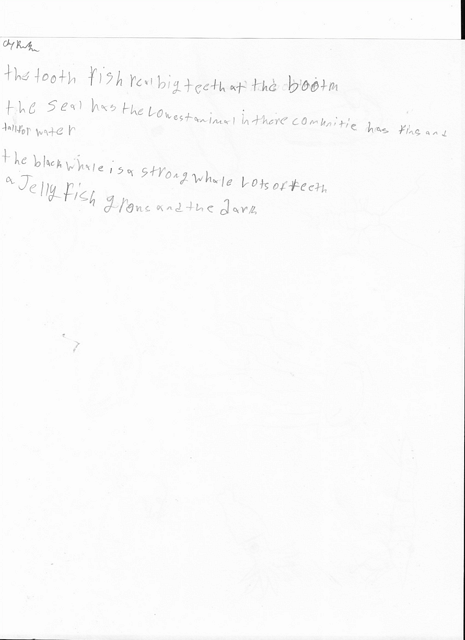 the tooth fish real big teeth at the bootm
the seal has the Lowest animal in there comunitie has fins and
tail for water
the black whale is a strong whale Lots of teeth
a Jelly fish grone and the dark